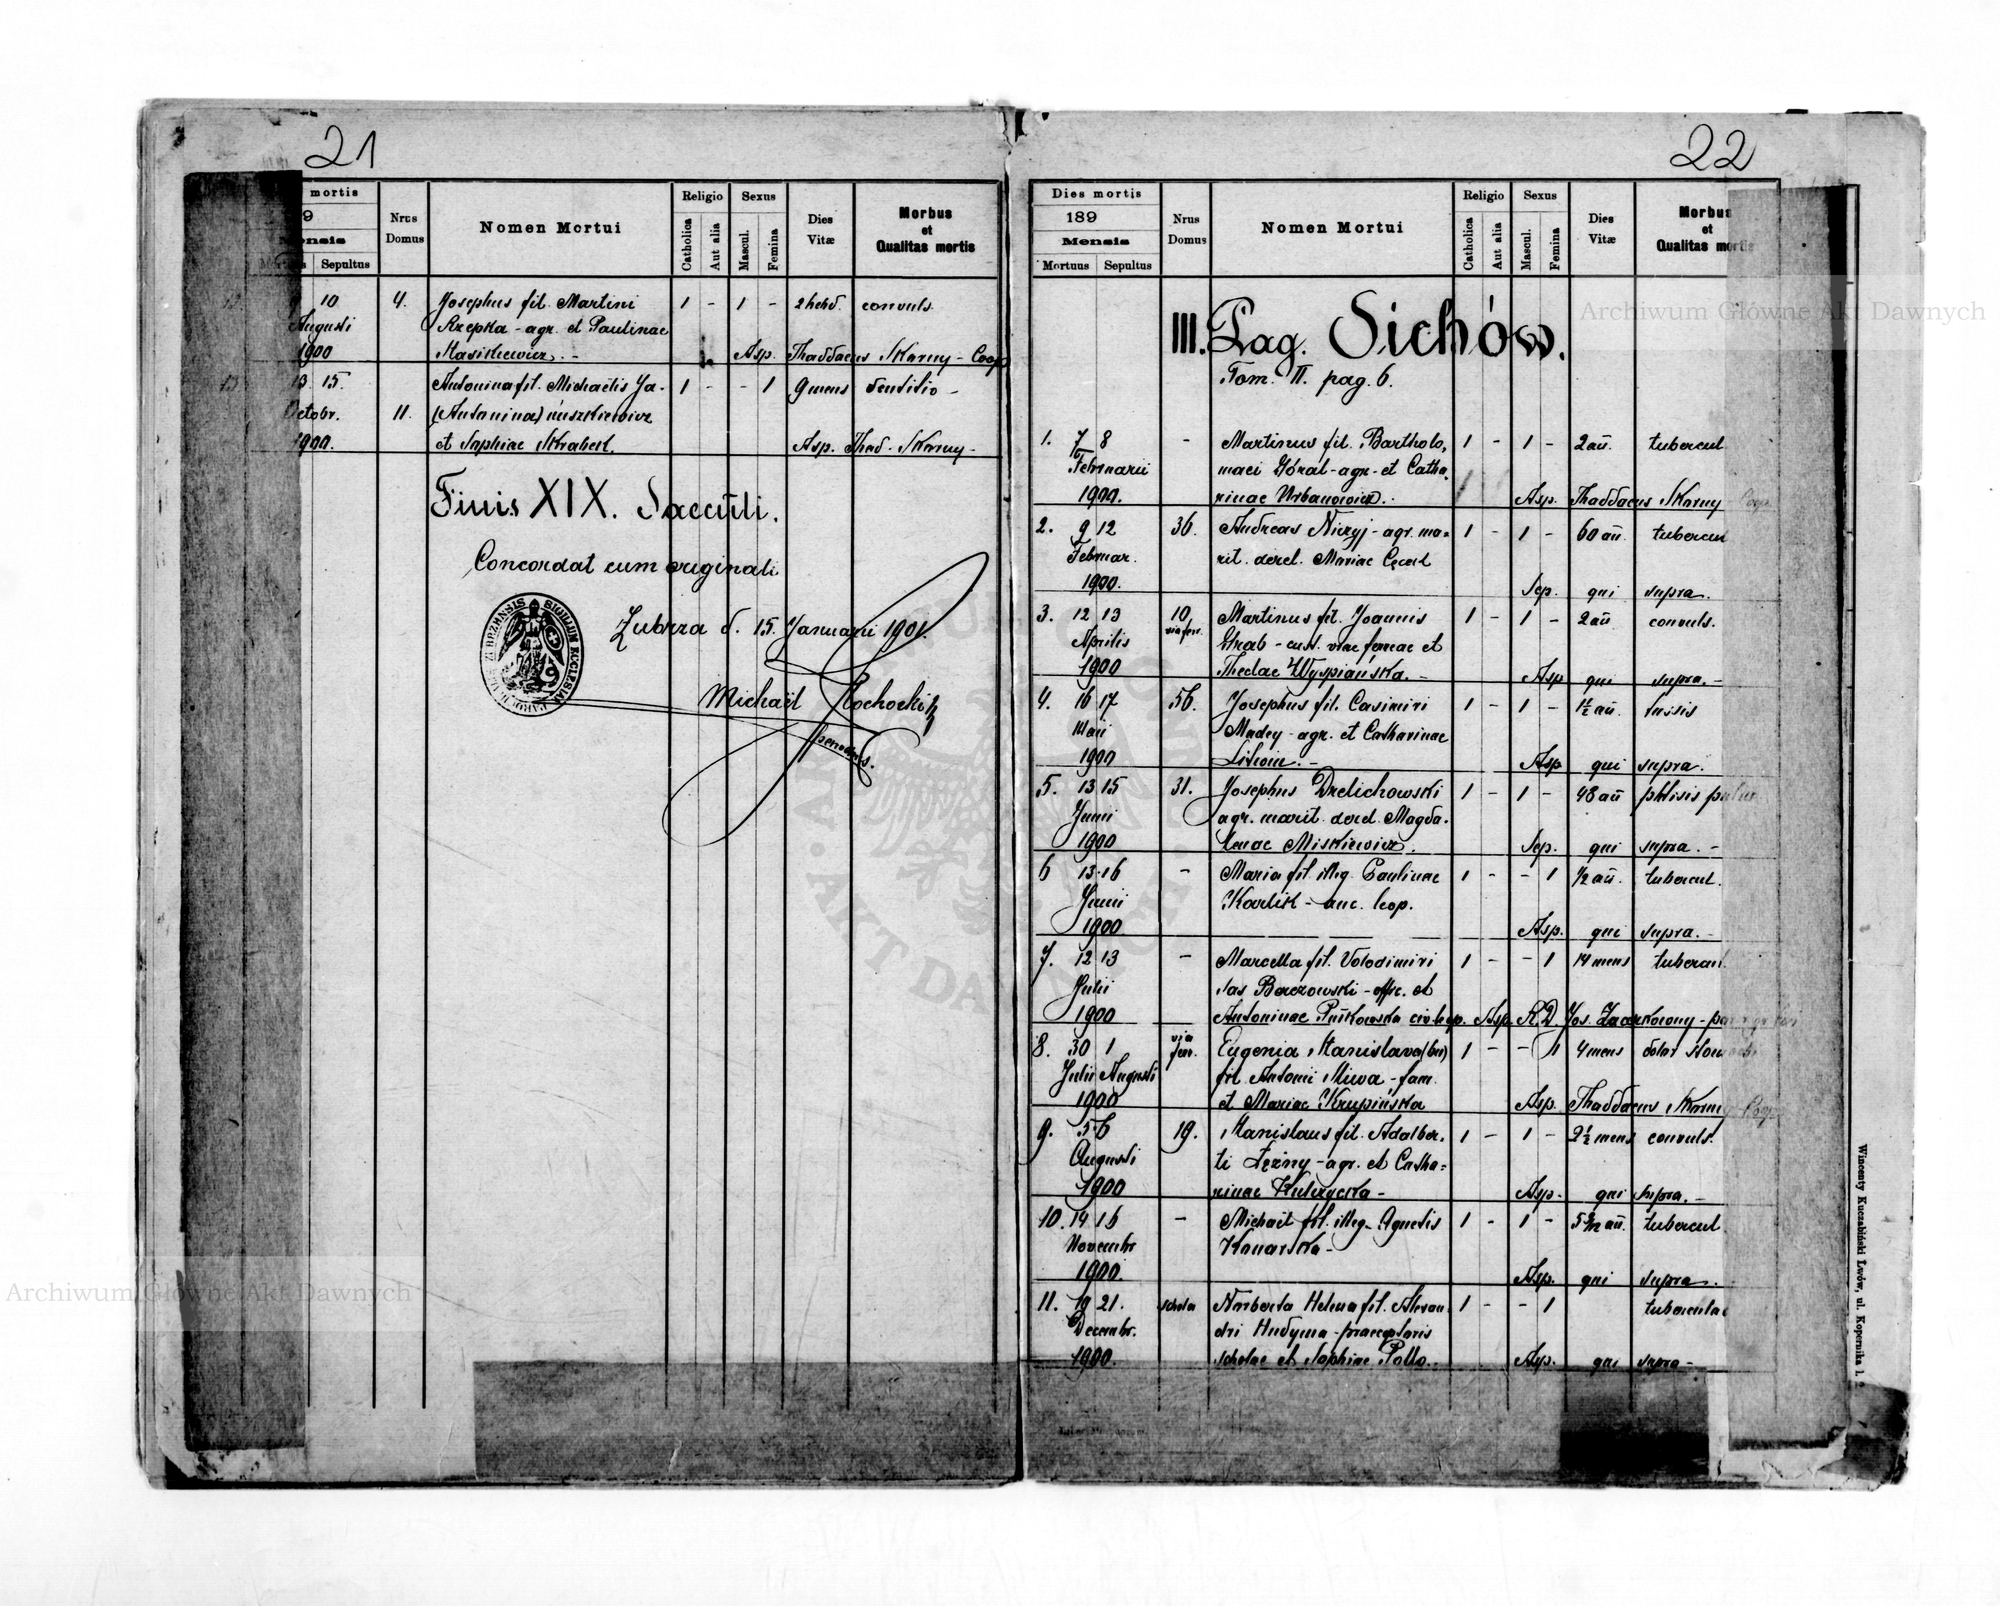 21
mortis
9
Mensis
Sepultus
Nrus
Domus
Nomen Mortui
Religio
Catholica
Aut alia
Sexus
Mascul.
Femina
Dies
Vitæ
Morbus
et
Qualitas mortis
10 4. Josephus fil. Martini 1 - 1 - 2 hebd. convuls.
Augusti Rzepka - agr. et Paulinae
1900 Stasikiewicz. - Asp. Thaddaeus Skarny - Coop
13 15. Antonina fil. Michaelis Ja- 1 - - 1 9 mens dentitio -
Octobr. 11. (Antonina) nuszkiewicz
1900. et Sophiae Skrabek. Asp. Thad. Skarny -
Finis XIX. Saeculi.
Concordat cum originali
Zubrza d. 15. Januarii 1901.
SIGILLUM ECCLESIAE PAROCHIALIS ZUBRZENSIS
Michaël
parochus.
22
Dies mortis
189
Mensis
Mortuus Sepultus
Nrus
Domus
Nomen Mortui
Religio
Catholica
Aut alia
Sexus
Mascul.
Femina
Dies
Vitæ
Morbus
et
Qualitas mortis
III. Pag. Sichów.
Tom. II. pag. 6.
1. 7 8 - Martinus fil. Bartholo- 1 - 1 - 2 añ. tubercul
Februarii maei Góral - agr. et Catha-
1900. rinae Urbanowicz. Asp. Thaddaeus Skarny Coop
2. 9 12 36. Andreas Nizyj - agr. ma- 1 - 1 - 60 añ. tubercul
Februar. rit. derel. Mariae
1900. Sep. qui supra.
3. 12 13 10 Martinus fil. Joannis 1 - 1 - 2 añ convuls.
Aprilis via ferr. Grab - cust. viae ferreae et
1900 Theclae Wyspiańska. - Asp qui supra. -
4. 16 17 56. Josephus fil. Casimiri 1 - 1 - 1½ añ. tussis
Maii Madey - agr. et Catharinae
1900 Asp qui supra.
5. 13 15 31. Josephus Drelichowski 1 - 1 - 48 añ phtisis
Junii agr. marit. derel. Magda-
1900 lenae Miskiewicz. Sep. qui supra. -
6 13 16 - Maria fil. illeg. Paulinae 1 - - 1 ½ añ. tubercul.
Junii Kavlik - anc. leop.
1900 Asp. qui supra. -
7. 12 13 - Marcella fil. Volodimiri 1 - - 1 14 mens tubercul.
Julii Sas Berezowski - offic. et
1900 Antoninae Asp R. D. Jos.
8. 30 1 via ferr. Eugenia Stanislava (bin) 1 - - 1 4 mens dolor
Julii Augusti fil. Antonii Sliwa - fam.
1900 et Mariae Krupińska Asp. Thaddaeus Skarny Coop
9. 5 6 19. Stanislaus fil. Adalber- 1 - 1 - 2½ mens convuls.
Augusti ti Zęzny - agr. et Catha-
1900 rinae Kulczycka - Asp. qui supra. -
10. 14 16 - Michaël fil. illeg. Agnetis 1 - 1 - tubercul
Novembr Konarska -
1900. Asp. qui supra.
11. 19 21. schola Norberta Helena fil. Alexan- 1 - - 1 tuberculae
Decembr. dri Hudyma - praeceptoris
1900. scholae et Sophiae Pollo. Asp. qui supra -
Wincenty Kuczabiński Lwów, ul. Kopernika l. 2
Archiwum Główne Akt Dawnych
Archiwum Główne Akt Dawnych